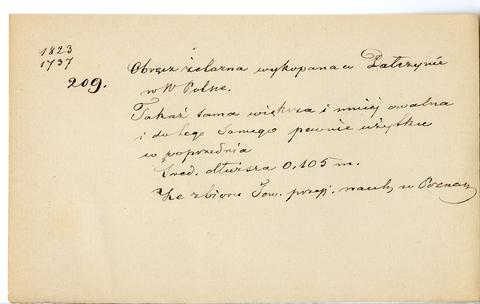 1823
1737
209.
Obręcz żelazna wykopana w Pałczynie
w W Polsce.
Takaż sama większa i mniej owalna
i do tego samego pewnie użytku
co poprzednia
Śred. dłuższa 0,105 m.
Ze zbioru Tow. przyj. nauk w Poznan